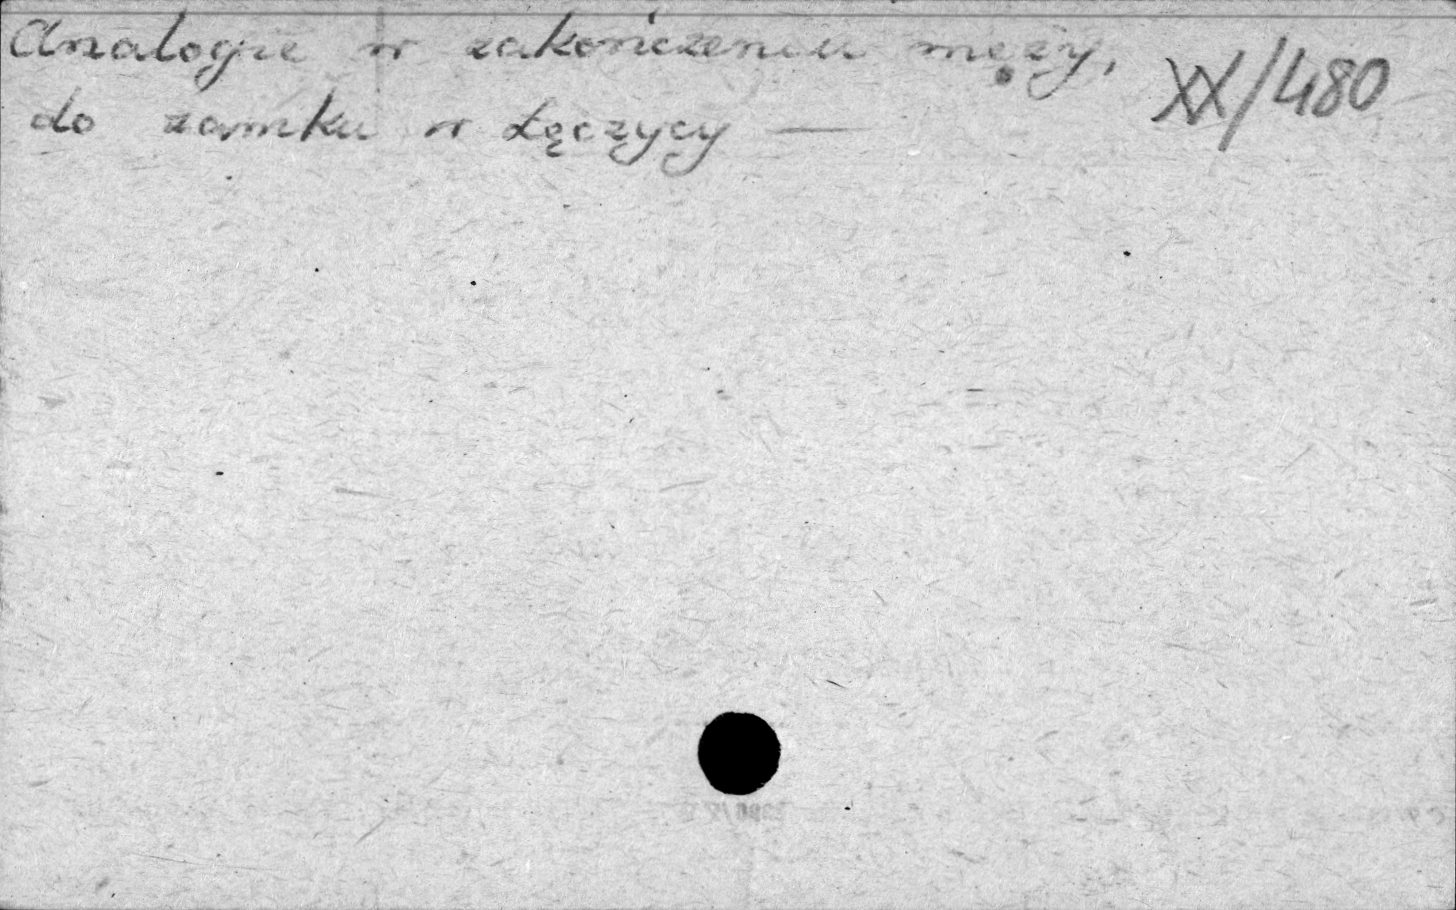 Analogie w zakończeniu męży,
XX/480
do zamku w Łęczycy —